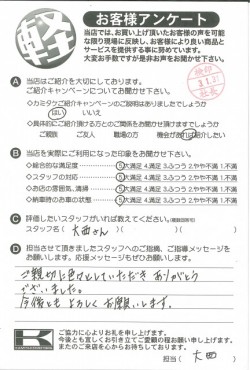 軽
お客様アンケート
当店では、お買い上げ頂いたお客様の声を可能
な限り現場に反映し、お客様により良い商品と
サービスを提供する事に努めています。
大変お手数ですが是非お声をお聞かせ下さい。
社長
A 当店はご紹介を大切にしております。
ご紹介キャンペーンについてお聞かせ下さい。
◇カミタケご紹介キャンペーンのご説明はありましたでしょうか
はい いいえ
◇具体的にご紹介頂ける方とのご関係をお聞かせ頂けますでしょうか
ご親戚 ご友人 職場の方 機会があれば紹介したい
B 当店を実際にご利用になった印象をお聞かせ下さい。
◇総合的な満足度 5.大満足 4.満足 3.ふつう 2.やや不満 1.不満
◇スタッフの対応 5.大満足 4.満足 3.ふつう 2.やや不満 1.不満
◇お店の雰囲気、清掃 5.大満足 4.満足 3.ふつう 2.やや不満 1.不満
◇納車時のお車の状態 5.大満足 4.満足 3.ふつう 2.やや不満 1.不満
C 評価したいスタッフがいれば教えてください。(複数回答可)
スタッフ名( 大西さん )
D 担当させて頂きましたスタッフへのご指摘、ご指導メッセージを
お願いします。応援メッセージもぜひお願いします。
ご親切に色々としていただき ありがとう
ございました。
今後とも よろしく お願いします。
K
ご協力に心よりお礼を申し上げます。
今後とも宜しくお引き立ててご愛顧の程お願い申し上げます。
またのご来店を心からお待ちしております。
担当( 大西 )